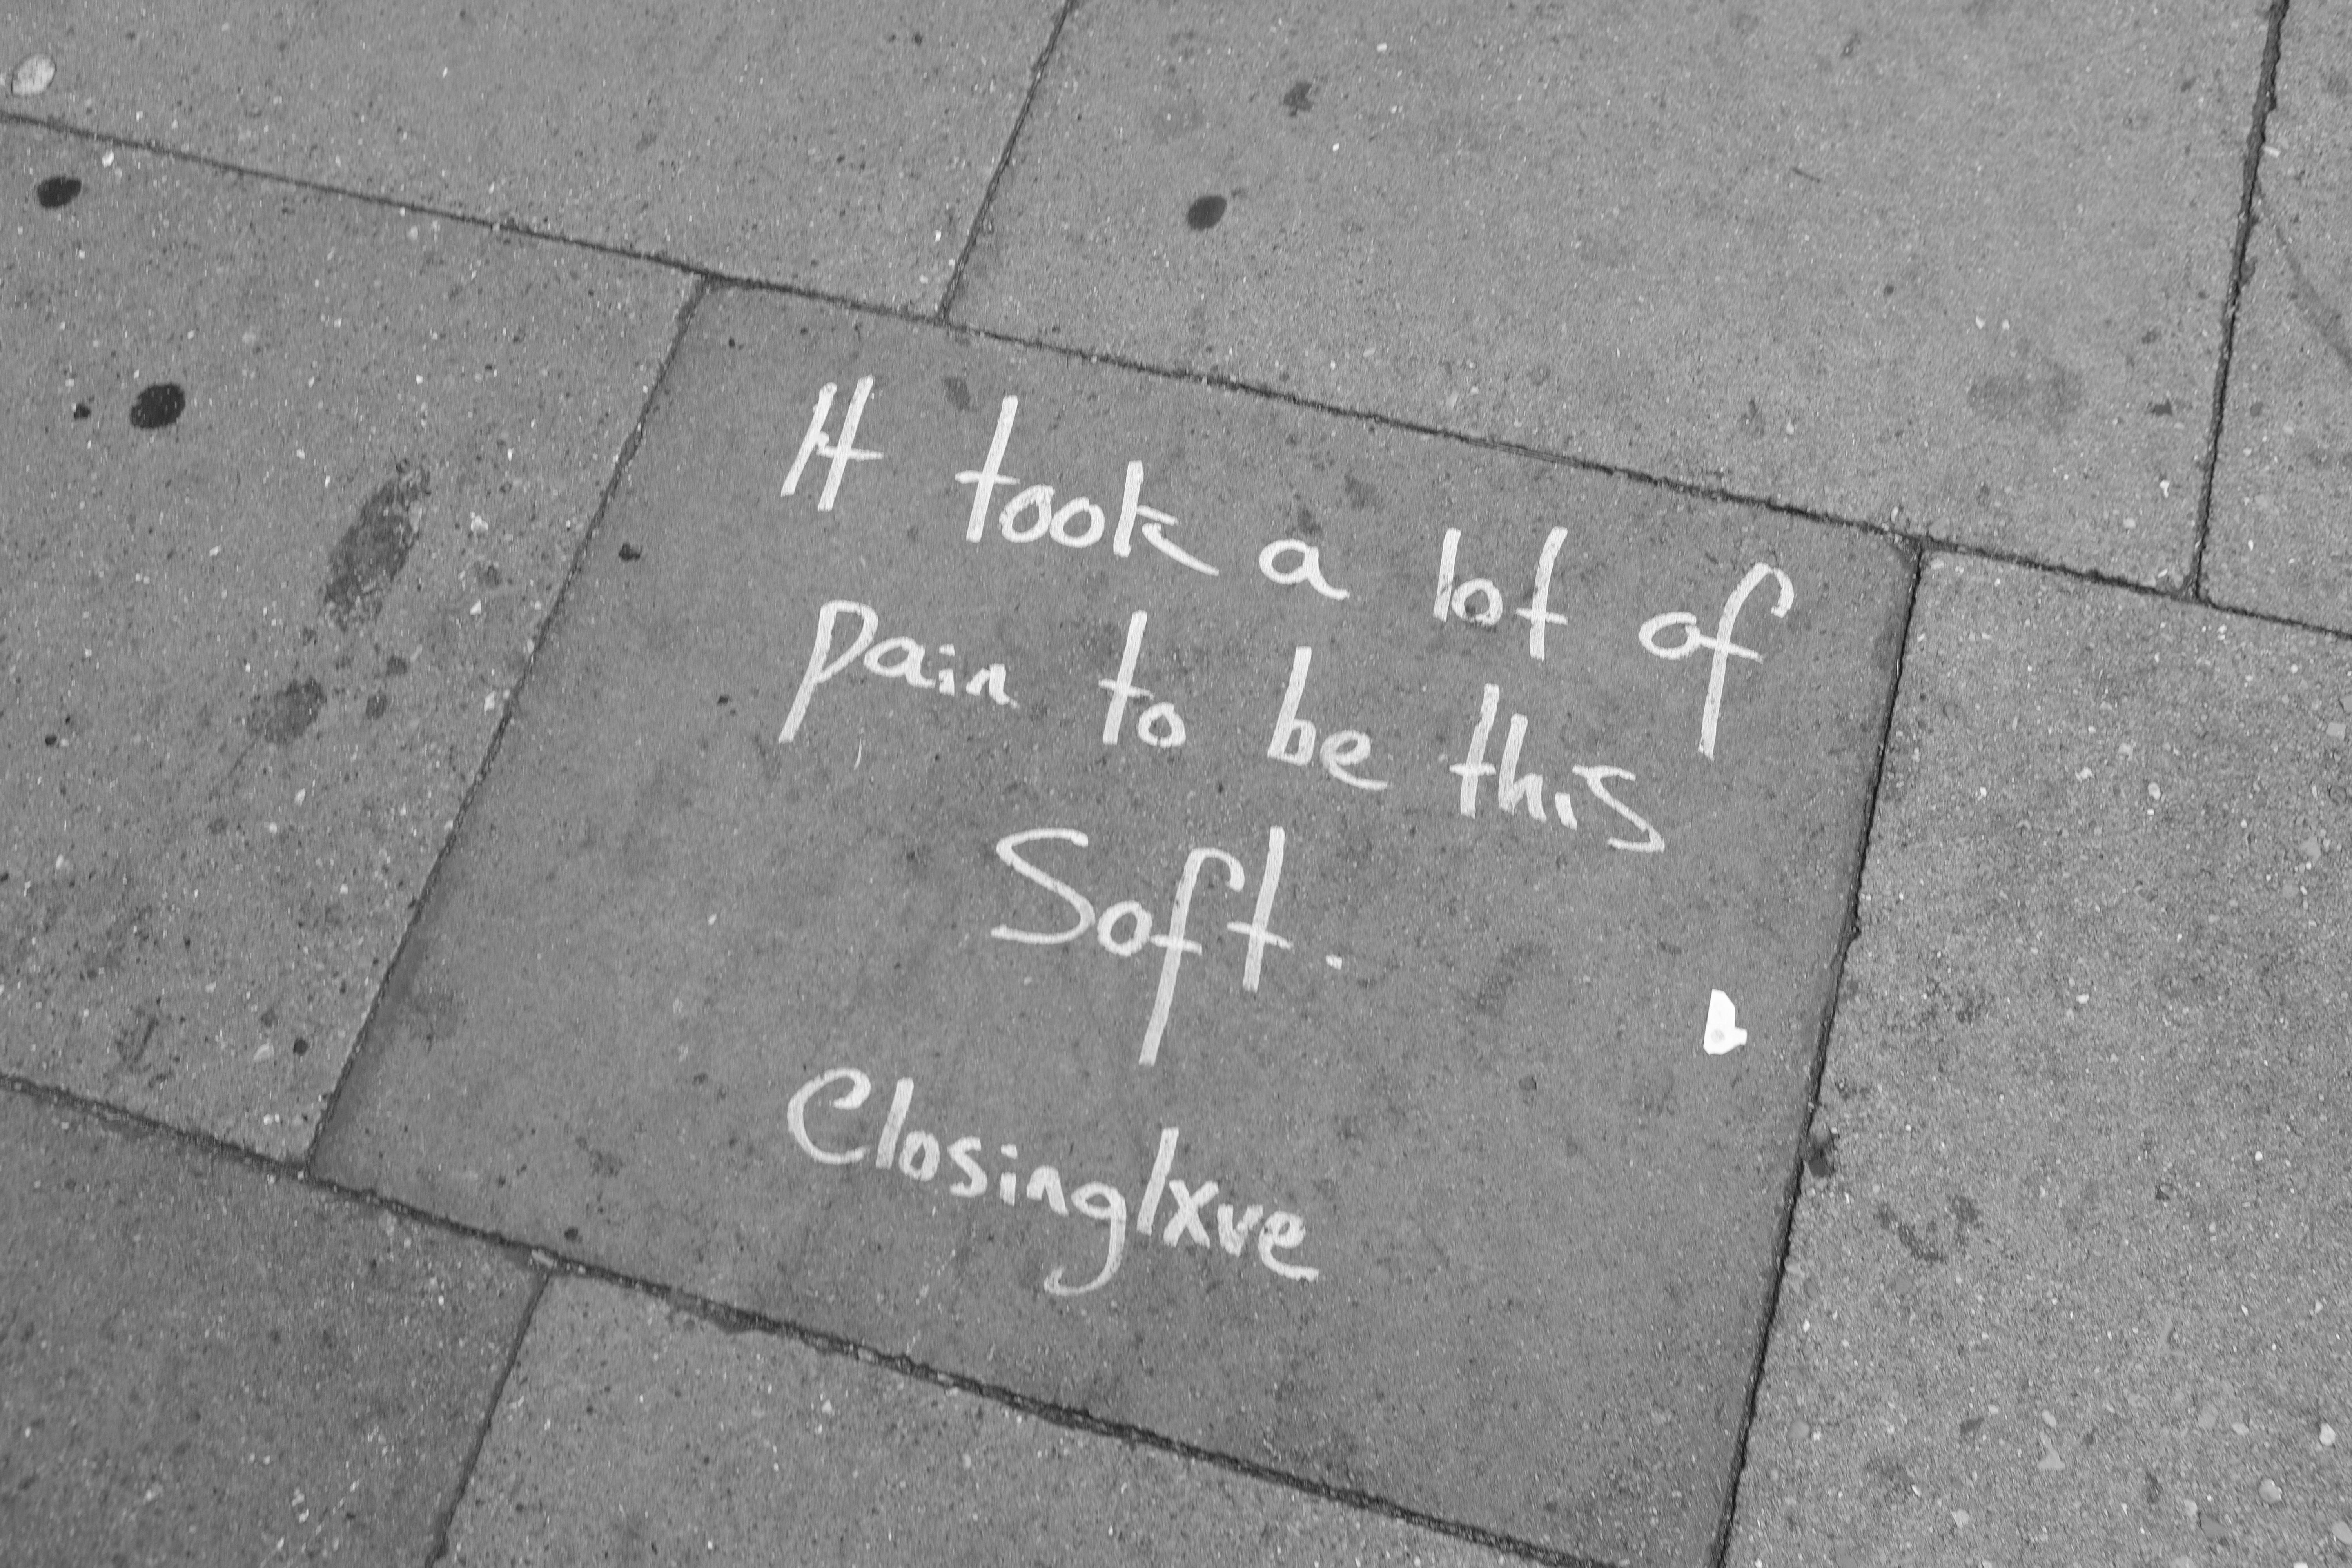 It took a lot of
pain to be this
Soft.
Closinglxve